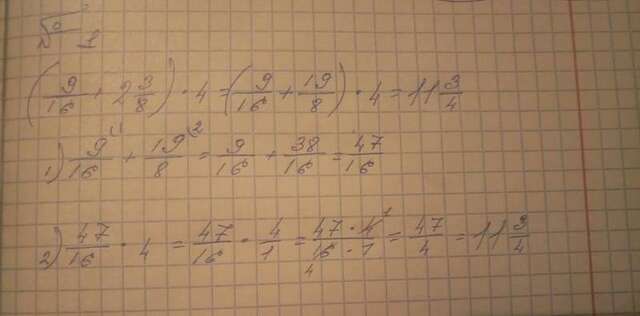 № 1
(9/16 + 2 3/8) · 4 = (9/16 + 19/8) · 4 = 11 3/4
1) 9^(1/16 + 19^(2/8 = 9/16 + 38/16 = 47/16
2) 47/16 · 4 = 47/16 · 4/1 = 47 · 4^1/16_4 · 1 = 47/4 = 11 3/4